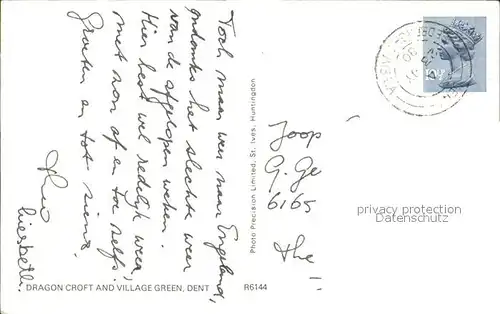 Toch maar weer naar Engeland,
ondanks het slechte weer
van de afgelopen weken.
Hier best wel redelijk weer,
met zon af en toe zelfs.
Groeten en tot ziens,
Liesbeth.
DRAGON CROFT AND VILLAGE GREEN, DENT R6144
Photo Precision Limited, St. Ives, Huntingdon
Joop
G. Ge
6165
the
privacy protection
Datenschutz